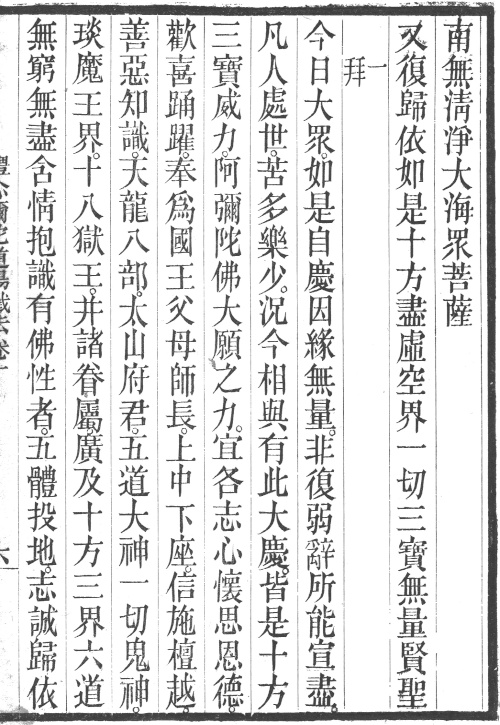 南無清淨大海眾菩薩
又復歸依如是十方盡虛空界一切三寶無量賢聖
一拜
今日大眾。如是自慶因緣無量。非復弱辭所能宣盡。
凡人處世。苦多樂少。況今相與有此大慶。皆是十方
三寶威力。阿彌陀佛大願之力。宜各志心懷思恩德。
歡喜踊躍。奉為國王父母師長。上中下座。信施檀越。
善惡知識。天龍八部。太山府君。五道大神一切鬼神。
琰魔王界。十八獄王。并諸眷屬。廣及十方三界六道
無窮無盡含情抱識有佛性者。五體投地。志誠歸依